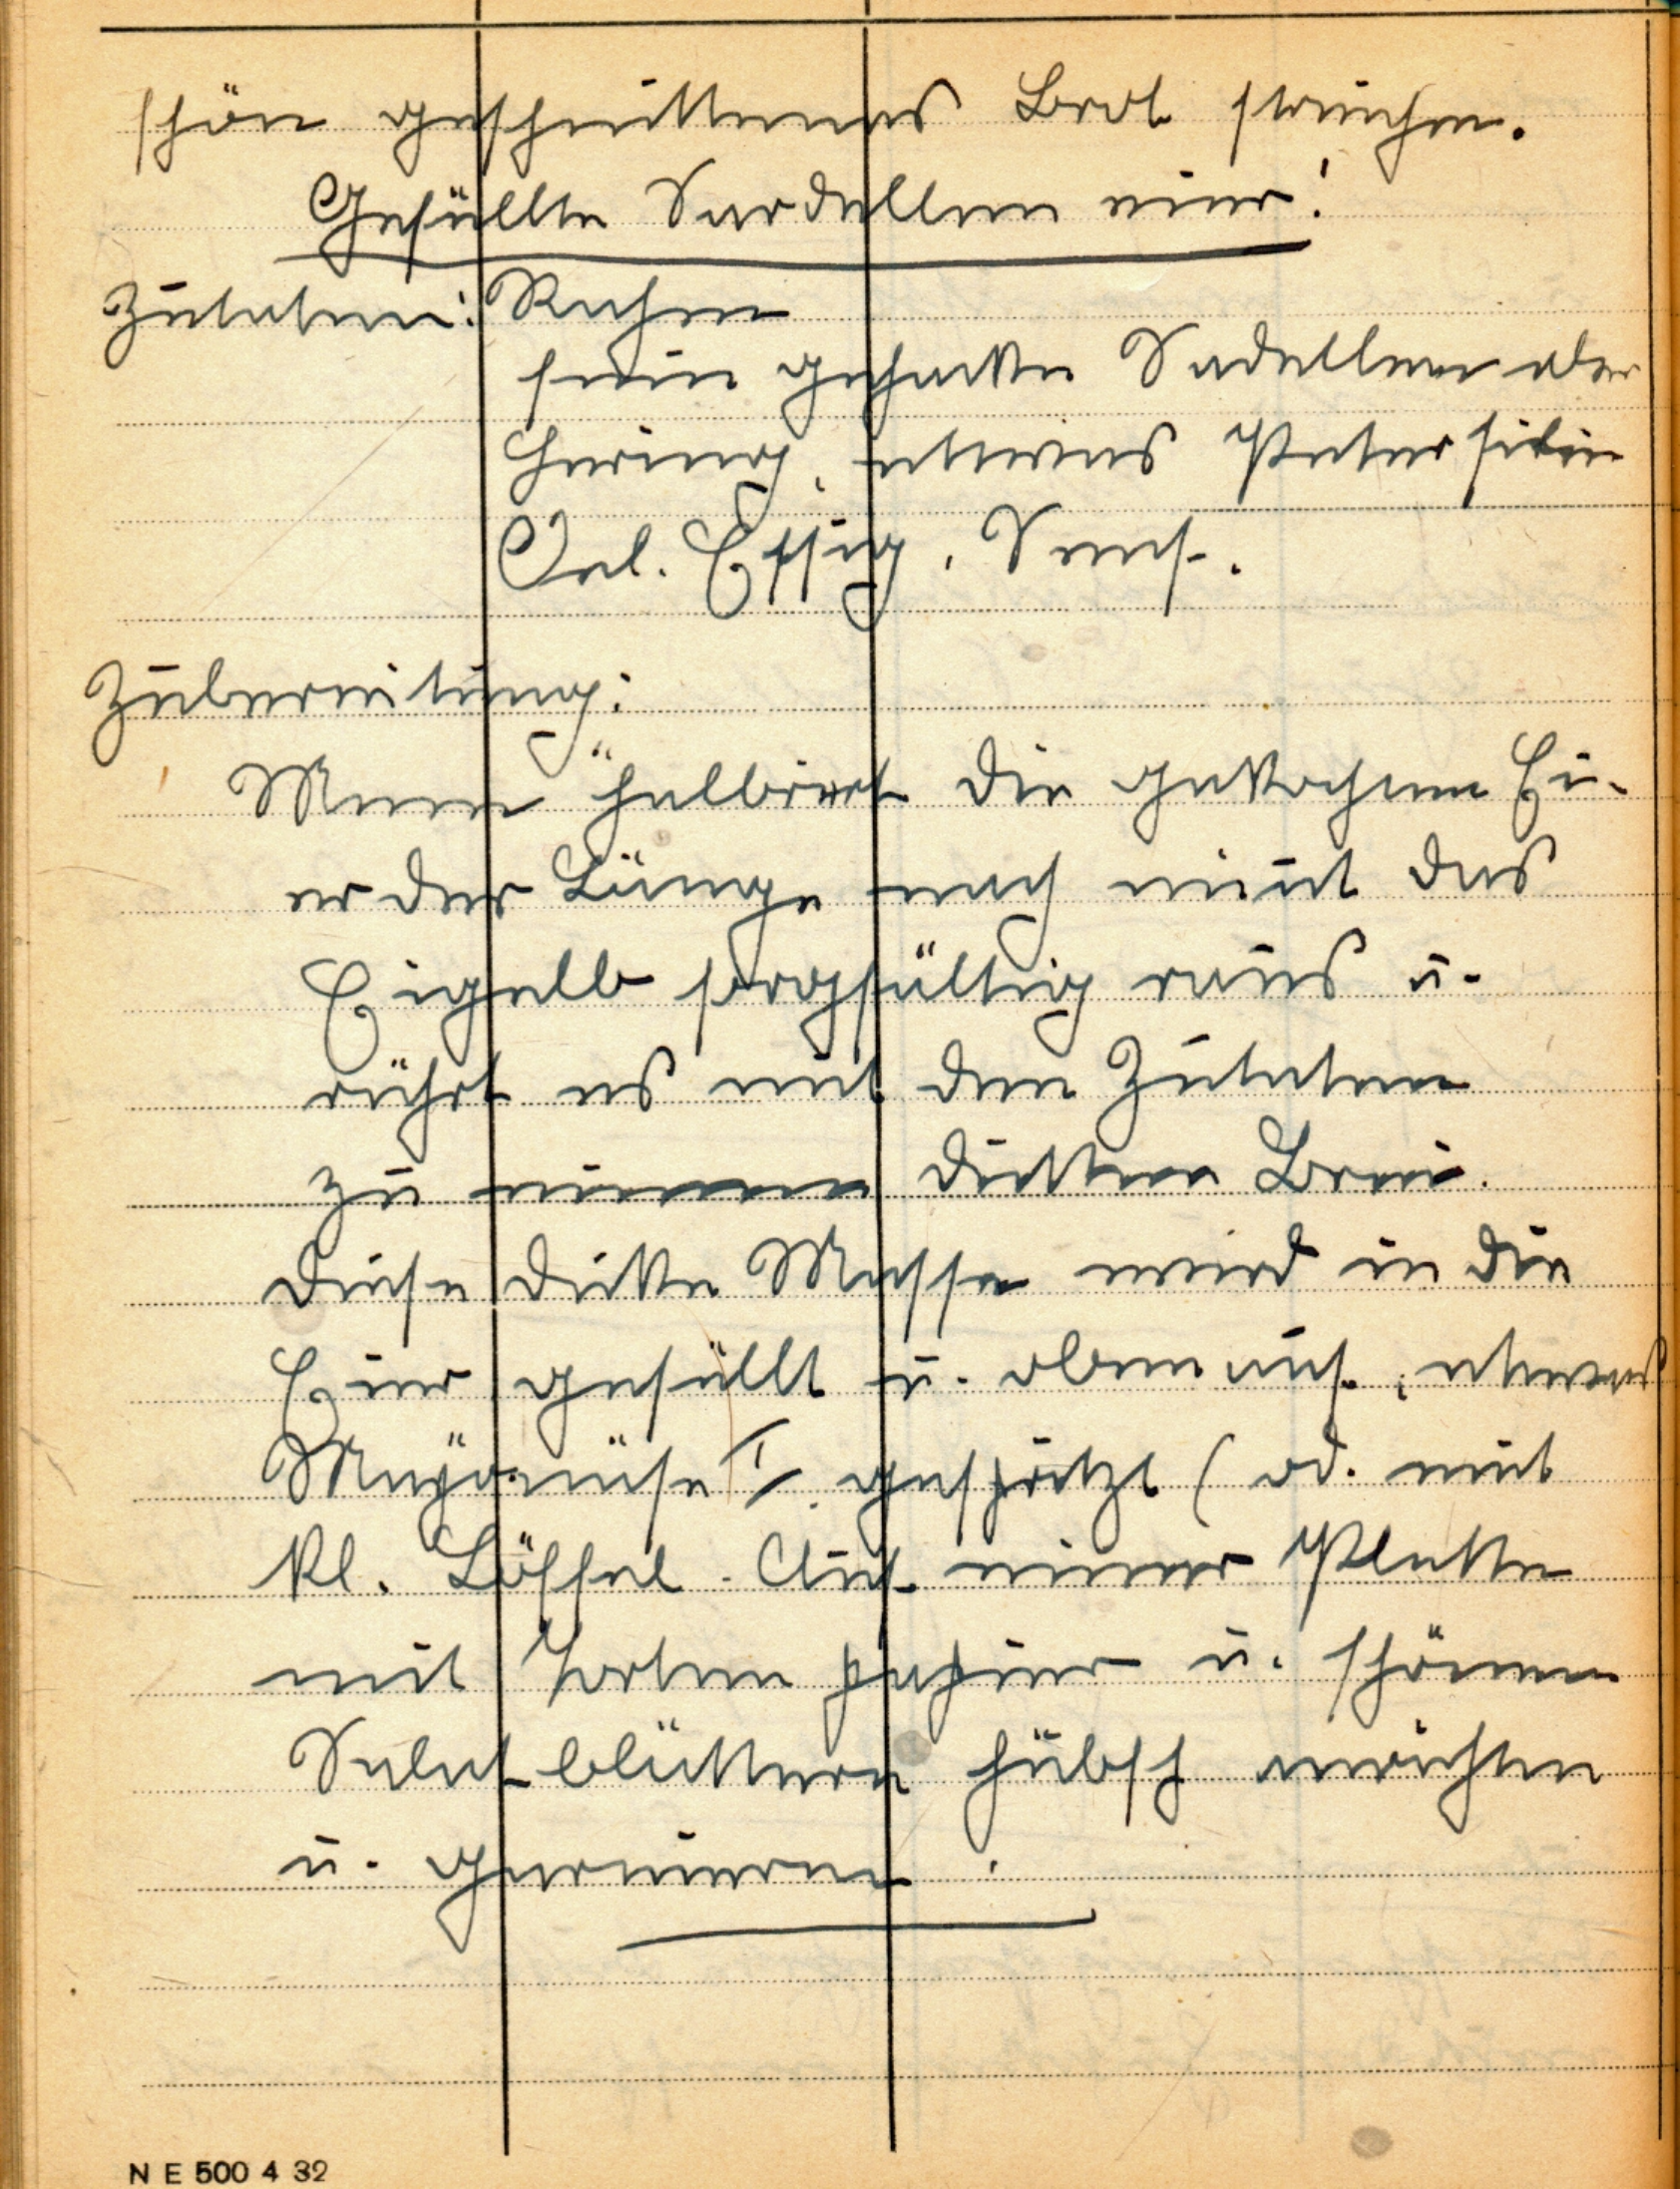 schön geschnittenes Brot streichen.
Gefüllte Sardelleneier!
Zutaten: Rahm
fein gehakte Sadellen oder
Hering, etwas Petersilie
Oel. Essig, Senf.
Zubereitung:
Man halbiert die gekochten Ei-
er der Länge nach nimt das
Eigelb sorgfältig raus u.
rührt es mit den Zutaten
zu dicken Brei.
Diese dicke Masse wird in die
Eier gefüllt u. oben auf, etwas
Mayonäse gespritzt (od. mit
kl. Löffel. Auf einer Platte
mit Tortenpapier u. schönen
Salatblättern hübsch anrichten
u. garnieren.
N E 500 4 32